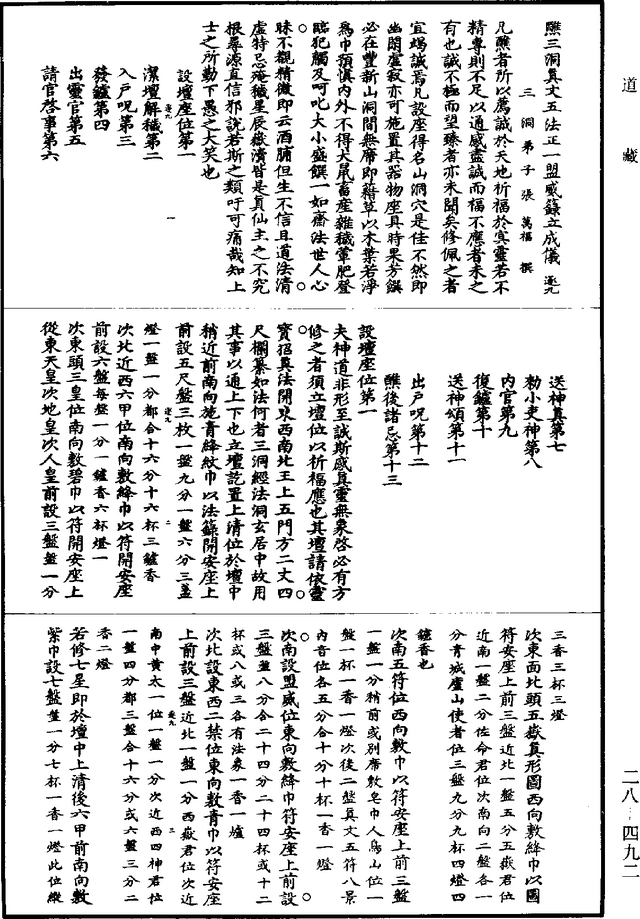 道藏
醮三洞真文五法正一盟威籙立成儀 逐九
三洞弟子張萬福撰
凡醮者所以薦誠於天地祈福於冥靈若不
精專則不足以通感盡誠而福不應者未之
有也誠不極而望臻者亦未聞矣修佩之者
宜竭誠焉凡設座得名山洞穴是佳不然即
幽閑虛寂亦可施置其器物座具時果芳饌
必在豐新山洞間無席即藉草以木葉若淨
為巾預慎內外不得犬鼠畜產雜穢葷肥登
臨犯觸及呵叱大小盛饌一如齋法世人心
昧不覩精微即云酒脯但生不信且道法清
虛特忌殗穢星辰嶽瀆皆是真仙主之不究
根尋源直信邪說若斯之類吁可痛哉知上
士之所勤下愚之大笑也
設壇座位第一
潔壇解穢第二
逐九 一
入戶呪第三
發鑪第四
出靈官第五
請官啓事第六
送神真第七
勑小吏神第八
內官第九
復鑪第十
送神頌第十一
出戶呪第十二
醮後諸忌第十三
設壇座位第一
夫神道非形至誠斯感真靈無象啓必有方
修之者須立壇位以祈福應也其壇請依靈
寶招真法開東西南北王上五門方二丈四
尺欄纂如法何者三洞經法洞玄居中故用
其事以通上下也立壇訖置上清位於壇中
稍近前南向施青絳紋巾以法籙開安座上
前設五尺盤三枚一盤九分一盤六分三盞
逐九 二
燈一盤一分都合十六分十六杯三鑪香
次北近西六甲位南向敷絳巾以符開安座
前設六盤每盤一分一鑪香六杯燈一
次東頭三皇位南向敷碧巾以符開安座上
從東天皇次地皇次人皇前設三盤盤一分
三香三杯三燈
次東面北頭五嶽真形圖西向敷絳巾以圖
符安座上前三盤近北一盤五分五嶽君位
近南一盤二分佐命君位次南向二盤各一
分青城廬山使者位三盤九分九杯四燈四
鑪香也
次南五符位西向敷巾以符安座上前三盤
一盤一分稍前或別席敷皂巾人鳥山位一
盤一杯一香一燈次後二盤真文五符八景
內音位各五分合十分十杯一香一燈
次南設盟威位東向敷絳巾符安座上前設
三盤盤八分合二十四分二十四杯或十二
杯或八或三各有法象一香一爐
次北設東西二禁位東向敷青巾以符安座
上前設三盤近北一盤一分西嶽君位次近
逐九 三
南中黃太一位一盤一分次近西四神君位
一盤四分都三盤合十六分或六盤三分二
香二燈
若修七星即於壇中上清後六甲前南向敷
紫巾設七盤盤一分七杯一香一燈此位縱
二八—四九二